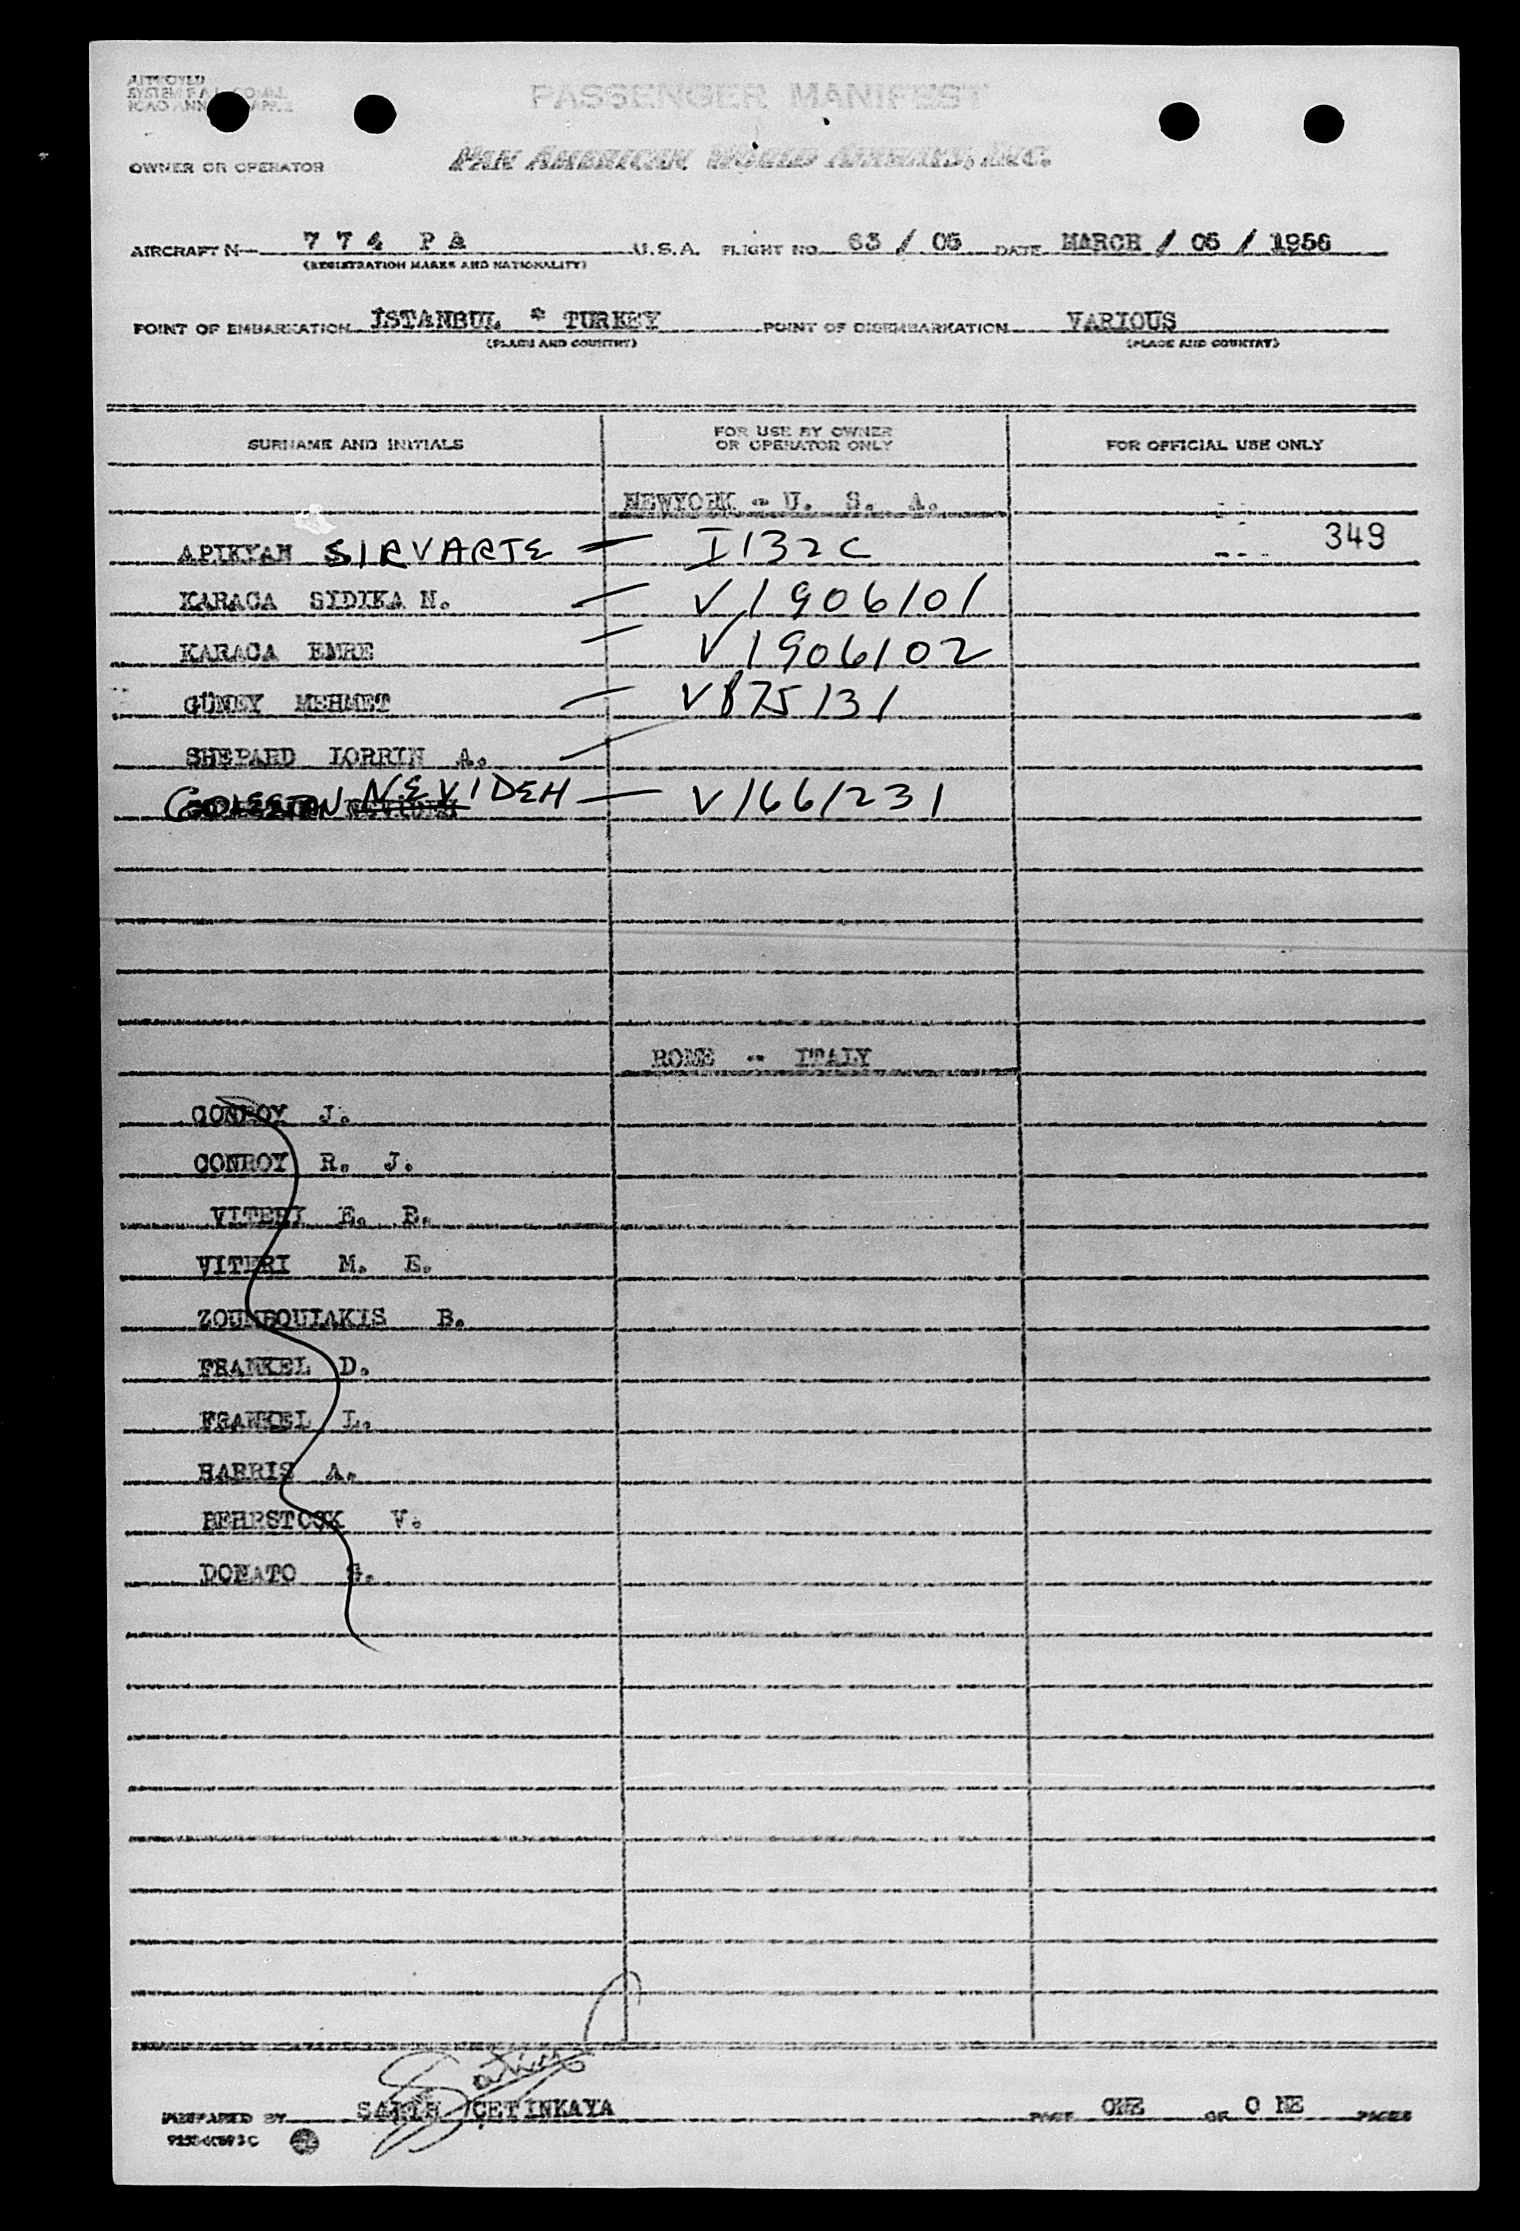 APPROVED
PASSENGER MANIFEST
OWNER OR OPERATOR PAN AMERICAN WORLD AIRWAYS, INC.
AIRCRAFT N— 774 PA U.S.A. FLIGHT NO. 63 / 05 DATE MARCH / 05 / 1956
(REGISTRATION MARKS AND NATIONALITY)
POINT OF EMBARKATION İSTANBUL * TURKEY POINT OF DISEMBARKATION VARIOUS
(PLACE AND COUNTRY) (PLACE AND COUNTRY)
SURNAME AND INITIALS FOR USE BY OWNER OR OPERATOR ONLY FOR OFFICIAL USE ONLY
NEWYORK - U. S. A.
APIKYAN SIRVARTE — I132C 349
KARACA SIDIKA N. — V1906101
KARACA EMRE — V1906102
GÜNEY MEHMET — V875131
SHEPARD LORRIN A. —
GOLESTAN NEVIDEH — V1661231
ROME - ITALY
CONROY J.
CONROY R. J.
VITERI E. E.
VITERI M. E.
ZOUMBOULAKIS B.
FRANKEL D.
FRANKEL L.
HARRIS A.
BEHRSTOCK V.
DONATO G.
PREPARED BY CETINKAYA PAGE ONE OF O NE PAGES